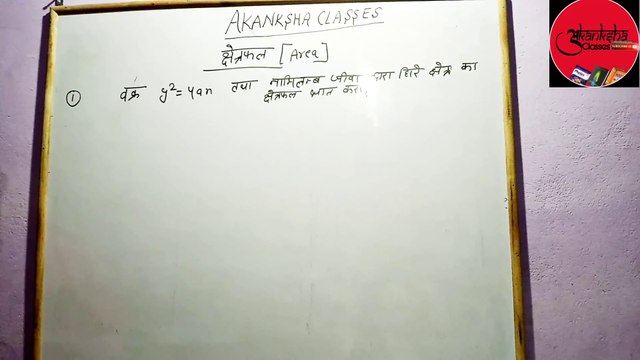 AKANKSHA CLASSES
क्षेत्रफल [Area]
① वक्र y²=4ax तथा नाभिलम्ब जीवा द्वारा घिरे क्षेत्र का
क्षेत्रफल ज्ञात करो।
akanksha
Classes